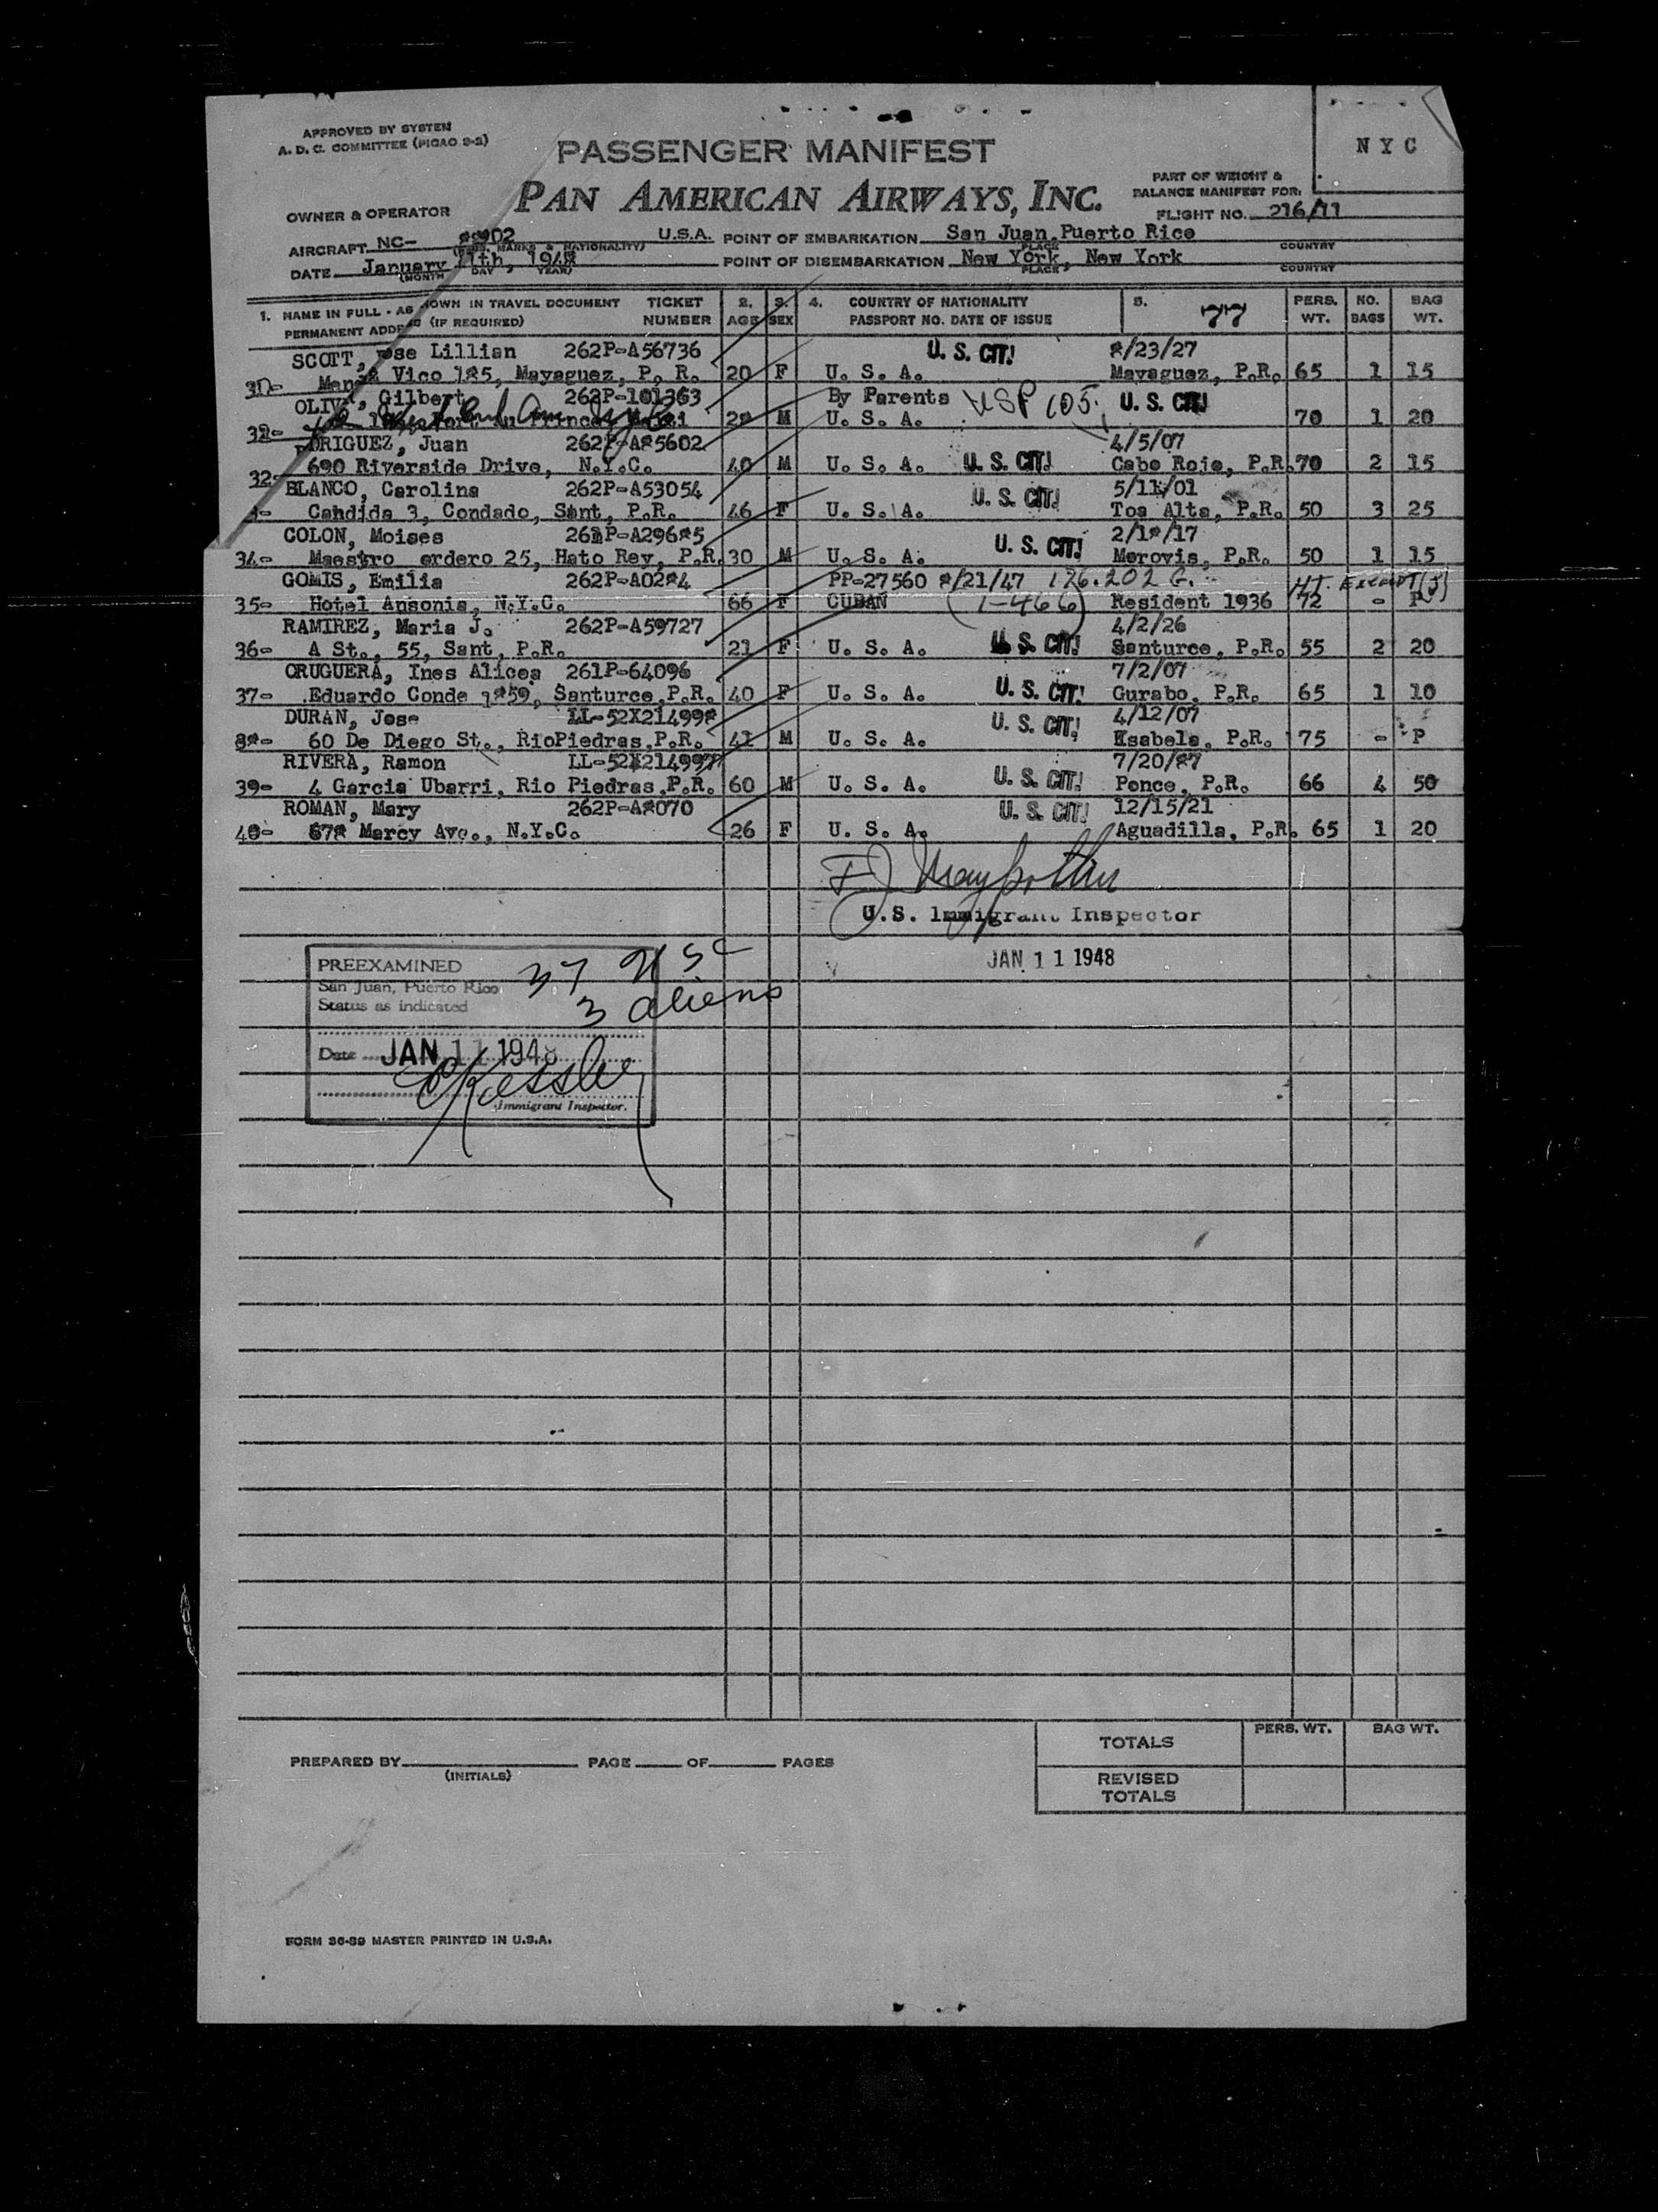 APPROVED BY SYSTEM
A. D. C. COMMITTEE (PICAO 2-2)
PASSENGER MANIFEST
NYC
PAN AMERICAN AIRWAYS, INC.
PART OF WEIGHT &
BALANCE MANIFEST FOR:
FLIGHT NO. 216/11
OWNER & OPERATOR
AIRCRAFT NC- 88902 U.S.A.
POINT OF EMBARKATION San Juan, Puerto Rico
PLACE COUNTRY
DATE January 11th, 1948
(MONTH DAY YEAR)
POINT OF DISEMBARKATION New York, New York
PLACE COUNTRY
1. NAME IN FULL - AS OWN IN TRAVEL DOCUMENT TICKET 2. 3. 4. COUNTRY OF NATIONALITY 5. 77 PERS. NO. BAG
PERMANENT ADDRE (IF REQUIRED) NUMBER AGE SEX PASSPORT NO. DATE OF ISSUE WT. BAGS WT.
SCOTT, ose Lillian 262P-A56736 U. S. CIT! 8/23/27
Vico 185, Mayaguez, P. R. 20 F U. S. A. Mayaguez, P.R. 65 1 15
Gilbert 262P-101363 By Parents USP 105 U. S. CIT!
Port Au Prince, M U. S. A. 70 1 20
RIGUEZ, Juan 262P-A85602 4/5/07
32- 690 Riverside Drive, N.Y.C. 40 M U. S. A. U. S. CIT! Cabo Rojo, P.R. 70 2 15
BLANCO, Carolina 262P-A53054 U. S. CIT! 5/11/01
Candida 3, Condado, Sant, P.R. 46 F U. S. A. Toa Alta, P.R. 50 3 25
COLON, Moises 262P-A29685 U. S. CIT! 2/18/17
34- Maestro ordero 25, Hato Rey, P.R. 30 M U. S. A. Morovis, P.R. 50 1 15
GOMIS, Emilia 262P-A0284 PP-27560 8/21/47 176.202 G. HT. EXEMPT (3)
35- Hotel Ansonia, N.Y.C. 66 F CUBAN (1-466) Resident 1936 72 - P
RAMIREZ, Maria J. 262P-A59727 4/2/26
36- A St., 55, Sant, P.R. 21 F U. S. A. U. S. CIT! Santurce, P.R. 55 2 20
ORUGUERA, Ines Alicea 261P-64096 7/2/07
37- Eduardo Conde 1859, Santurce, P.R. 40 F U. S. A. U. S. CIT! Gurabo, P.R. 65 1 10
DURAN, Jose LL-52X214998 U. S. CIT! 4/12/07
38- 60 De Diego St., RioPiedras, P.R. 41 M U. S. A. Isabela, P.R. 75 - P
RIVERA, Ramon LL-52X214997 7/20/87
39- 4 Garcia Ubarri, Rio Piedras, P.R. 60 M U. S. A. U. S. CIT! Ponce, P.R. 66 4 50
ROMAN, Mary 262P-A8070 U. S. CIT! 12/15/21
40- 678 Marcy Ave., N.Y.C. 26 F U. S. A. Aguadilla, P.R. 65 1 20
U.S. Immigrant Inspector
JAN 11 1948
PREEXAMINED
San Juan, Puerto Rico
Status as indicated
37 USC
3 aliens
Date JAN 11 1948
Kessler
Immigrant Inspector.
PERS. WT. BAG WT.
TOTALS
PREPARED BY PAGE OF PAGES
(INITIALS)
REVISED
TOTALS
FORM 36-59 MASTER PRINTED IN U.S.A.